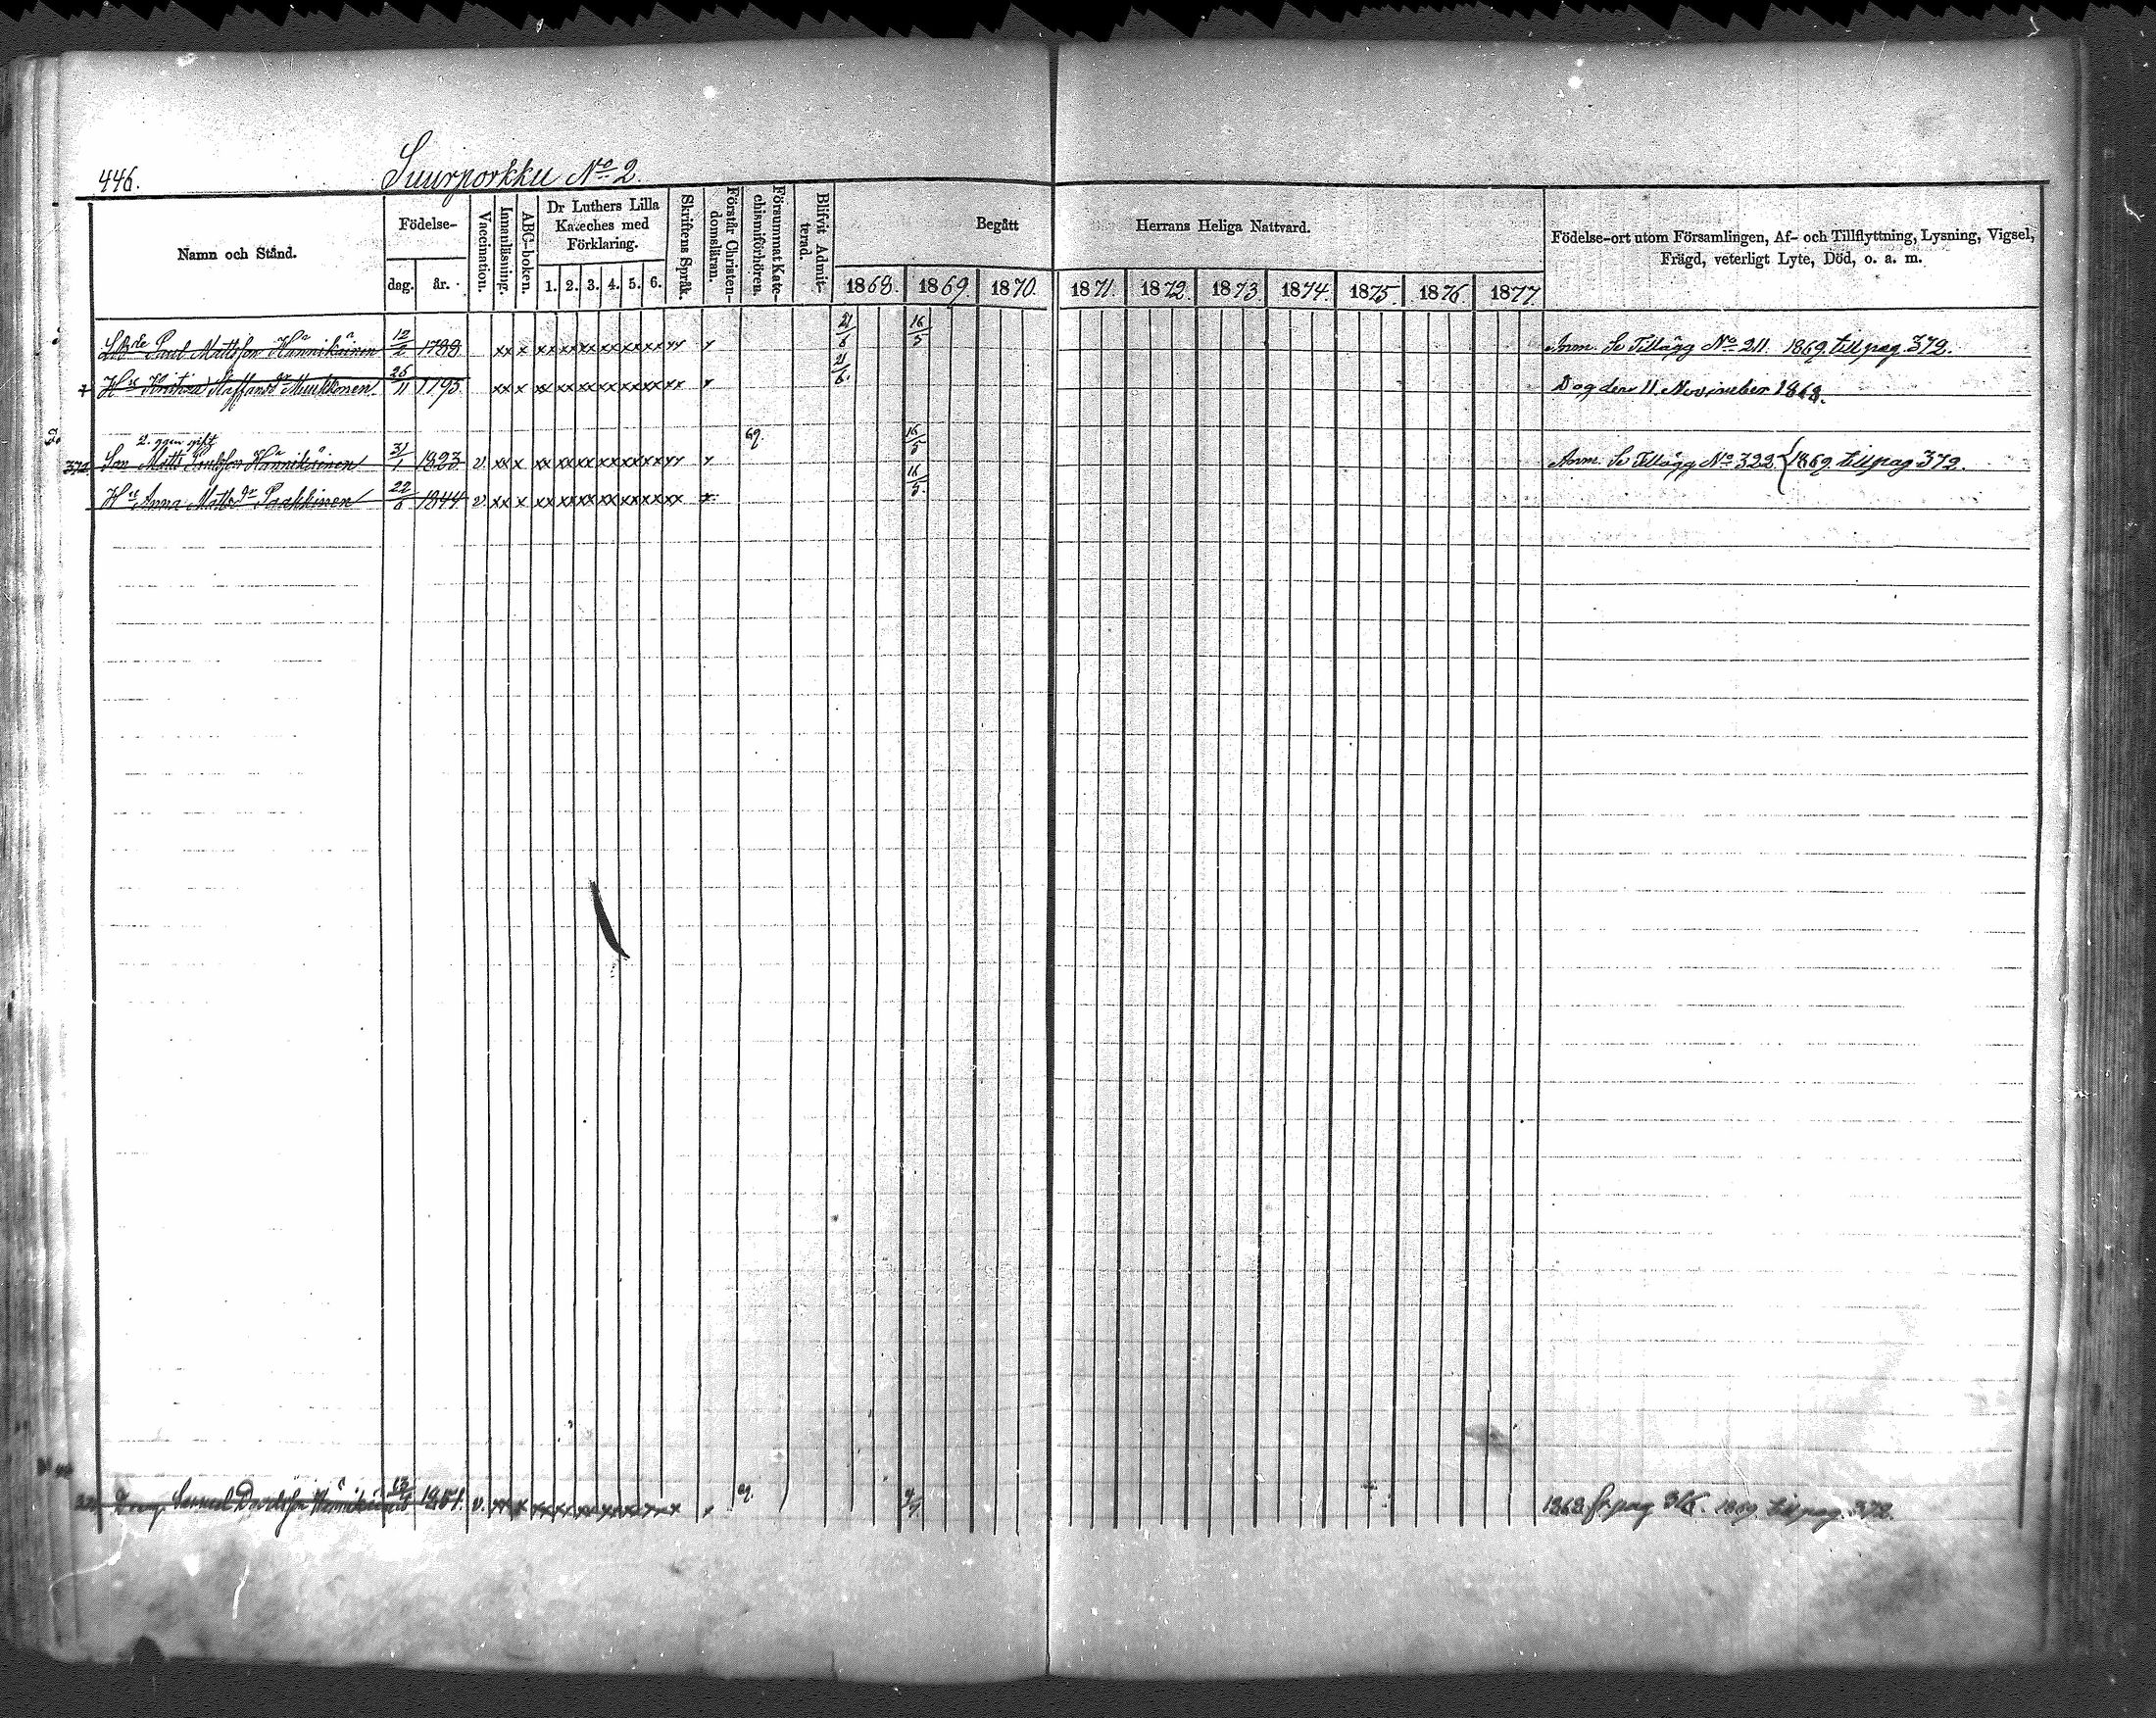 446. Suurporkku No 2.
Namn och Stånd.
Födelse-
dag. år.
Vaccination.
Innanläsning.
ABC-boken.
Dr Luthers Lilla Kateches med Förklaring.
1. 2. 3. 4. 5. 6.
Skriftens Språk.
Förstår Christendomsläran.
Försummat Katechismiförhören.
Blifvit Admitterad.
Begått Herrans Heliga Nattvard.
1868. 1869. 1870. 1871. 1872. 1873. 1874. 1875. 1876. 1877
Födelse-ort utom Församlingen, Af- och Tillflyttning, Lysning, Vigsel,
Frägd, veterligt Lyte, Död, o. a. m.
Paul Mattsson Hännikäinen 12/2 1788 xx x xx xx xx xx xx xx xx x 21/6 16/5 Anm. Se Tillägg No 211. 1869 till pag. 372.
Hu Kristina Staffansdr Muukkonen 25/11 1795 xx x xx xx xx xx xx xx xx x 21/6. Dog den 11 November 1868.
2. ggn gift 69. 16/5
372 Son Matts Paulsson Hännikäinen 31/1 1823 v. xx x xx xx xx xx xx xx xx x Anm. Se Tillägg No 322. 1869. till pag 372.
Hu Anna Mattsdr Paakkinen 22/6 1844 v. xx x xx xx xx xx xx xx xx x 16/5.
Samuel Davidsson Hännikäinen 1851. v. xx x xx xx xx xx xx xx xx x 1868 fr pag 1869. till pag. 372.